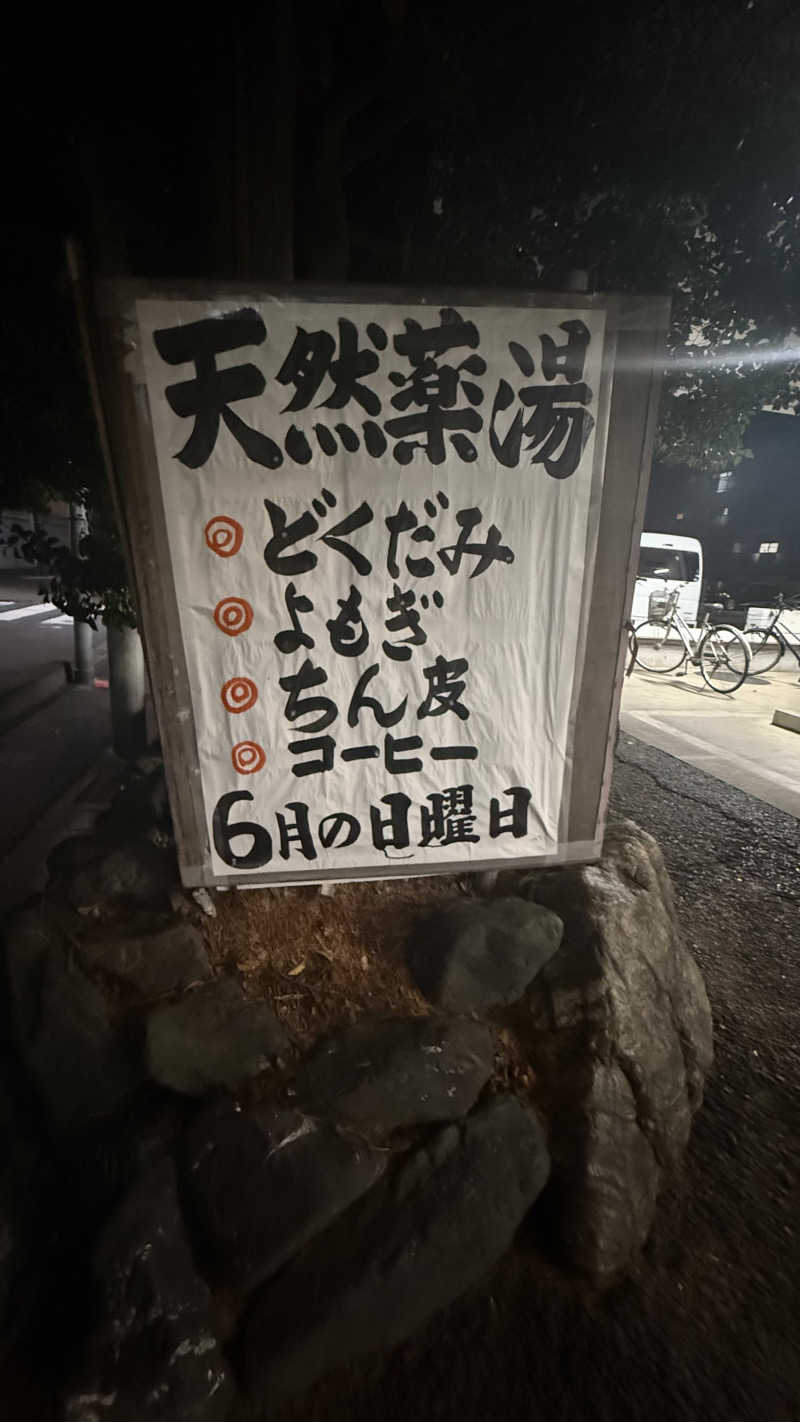 天然薬湯
◎ どくだみ
◎ よもぎ
◎ ちん皮
◎ コーヒー
6月の日曜日